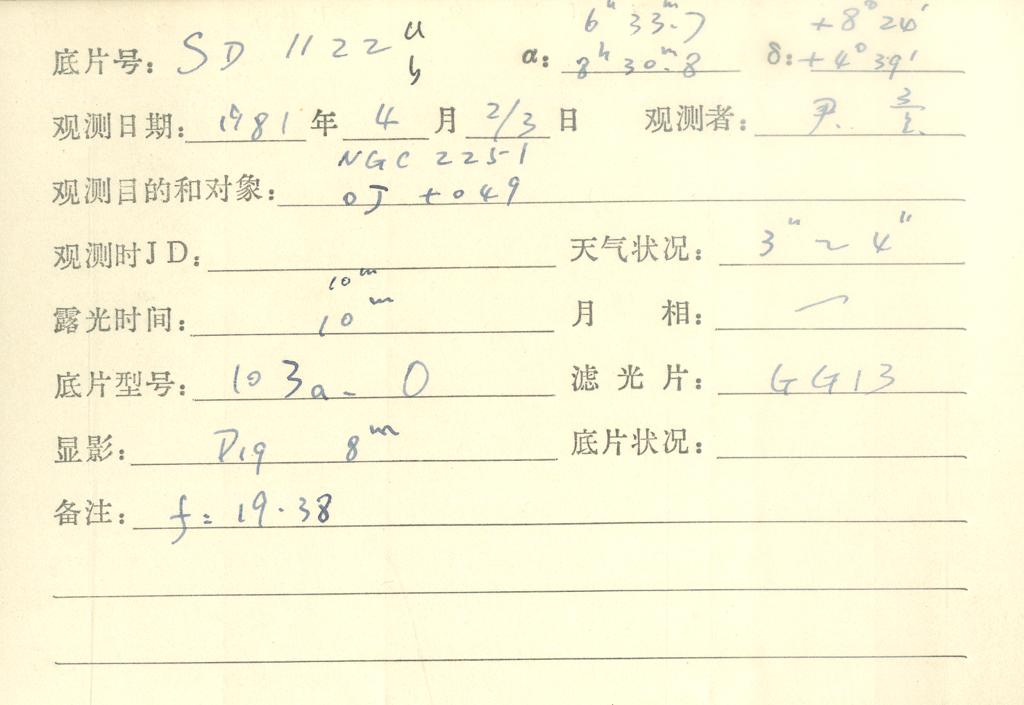 底片号: SD 1122 a b α: 6h 33m.7 8h 30m.8 δ: +8° 24′ +4° 39′
观测日期: 1981 年 4 月 2/3 日 观测者: 尹
观测目的和对象: NGC 2251 OJ +049
观测时JD: 天气状况: 3″~4″
露光时间: 10m 10m 月相:
底片型号: 103a-O 滤光片: GG13
显影: D19 8m 底片状况:
备注: f=19.38